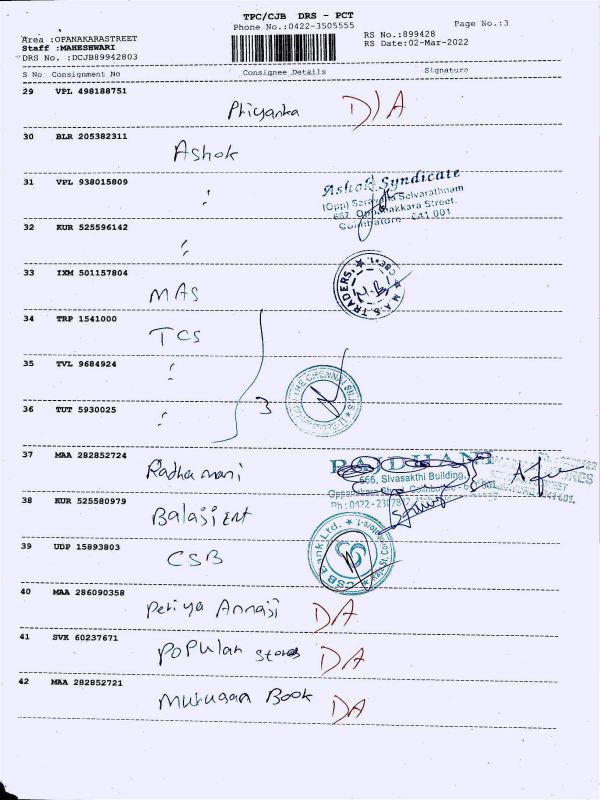 TPC/CJB DRS - PCT
Phone No.:0422-3505555
Page No.:3
Area :OPANAKARASTREET
Staff :MAHESHWARI
DRS No. :DCJB89942803
RS No.:899428
RS Date:02-Mar-2022
S No Consignment No Consignee Details Signature
29 VPL 498188751
Priyanka D/A
30 BLR 205382311
Ashok
31 VPL 938015809
Ashok Syndicate
(Opp) Saravana Selvarathnam
667, Oppanakkara Street,
Coimbatore - 641 001
32 KUR 525596142
33 IXM 501157804
MAS
M.A.S. TRADERS
34 TRP 1541000
TCS
35 TVL 9684924
THE CHENNAI SILKS
3
36 TUT 5930025
37 MAA 282852724
Radha mani
RAJDHANI
666, Sivasakthi Building,
38 KUR 525580979
Balaji Ent
39 UDP 15893803
CSB
CSB Bank Ltd.
40 MAA 286090358
Periya Annaji DA
41 SVK 60237671
Popular stores DA
42 MAA 282852721
Murugan Book DA